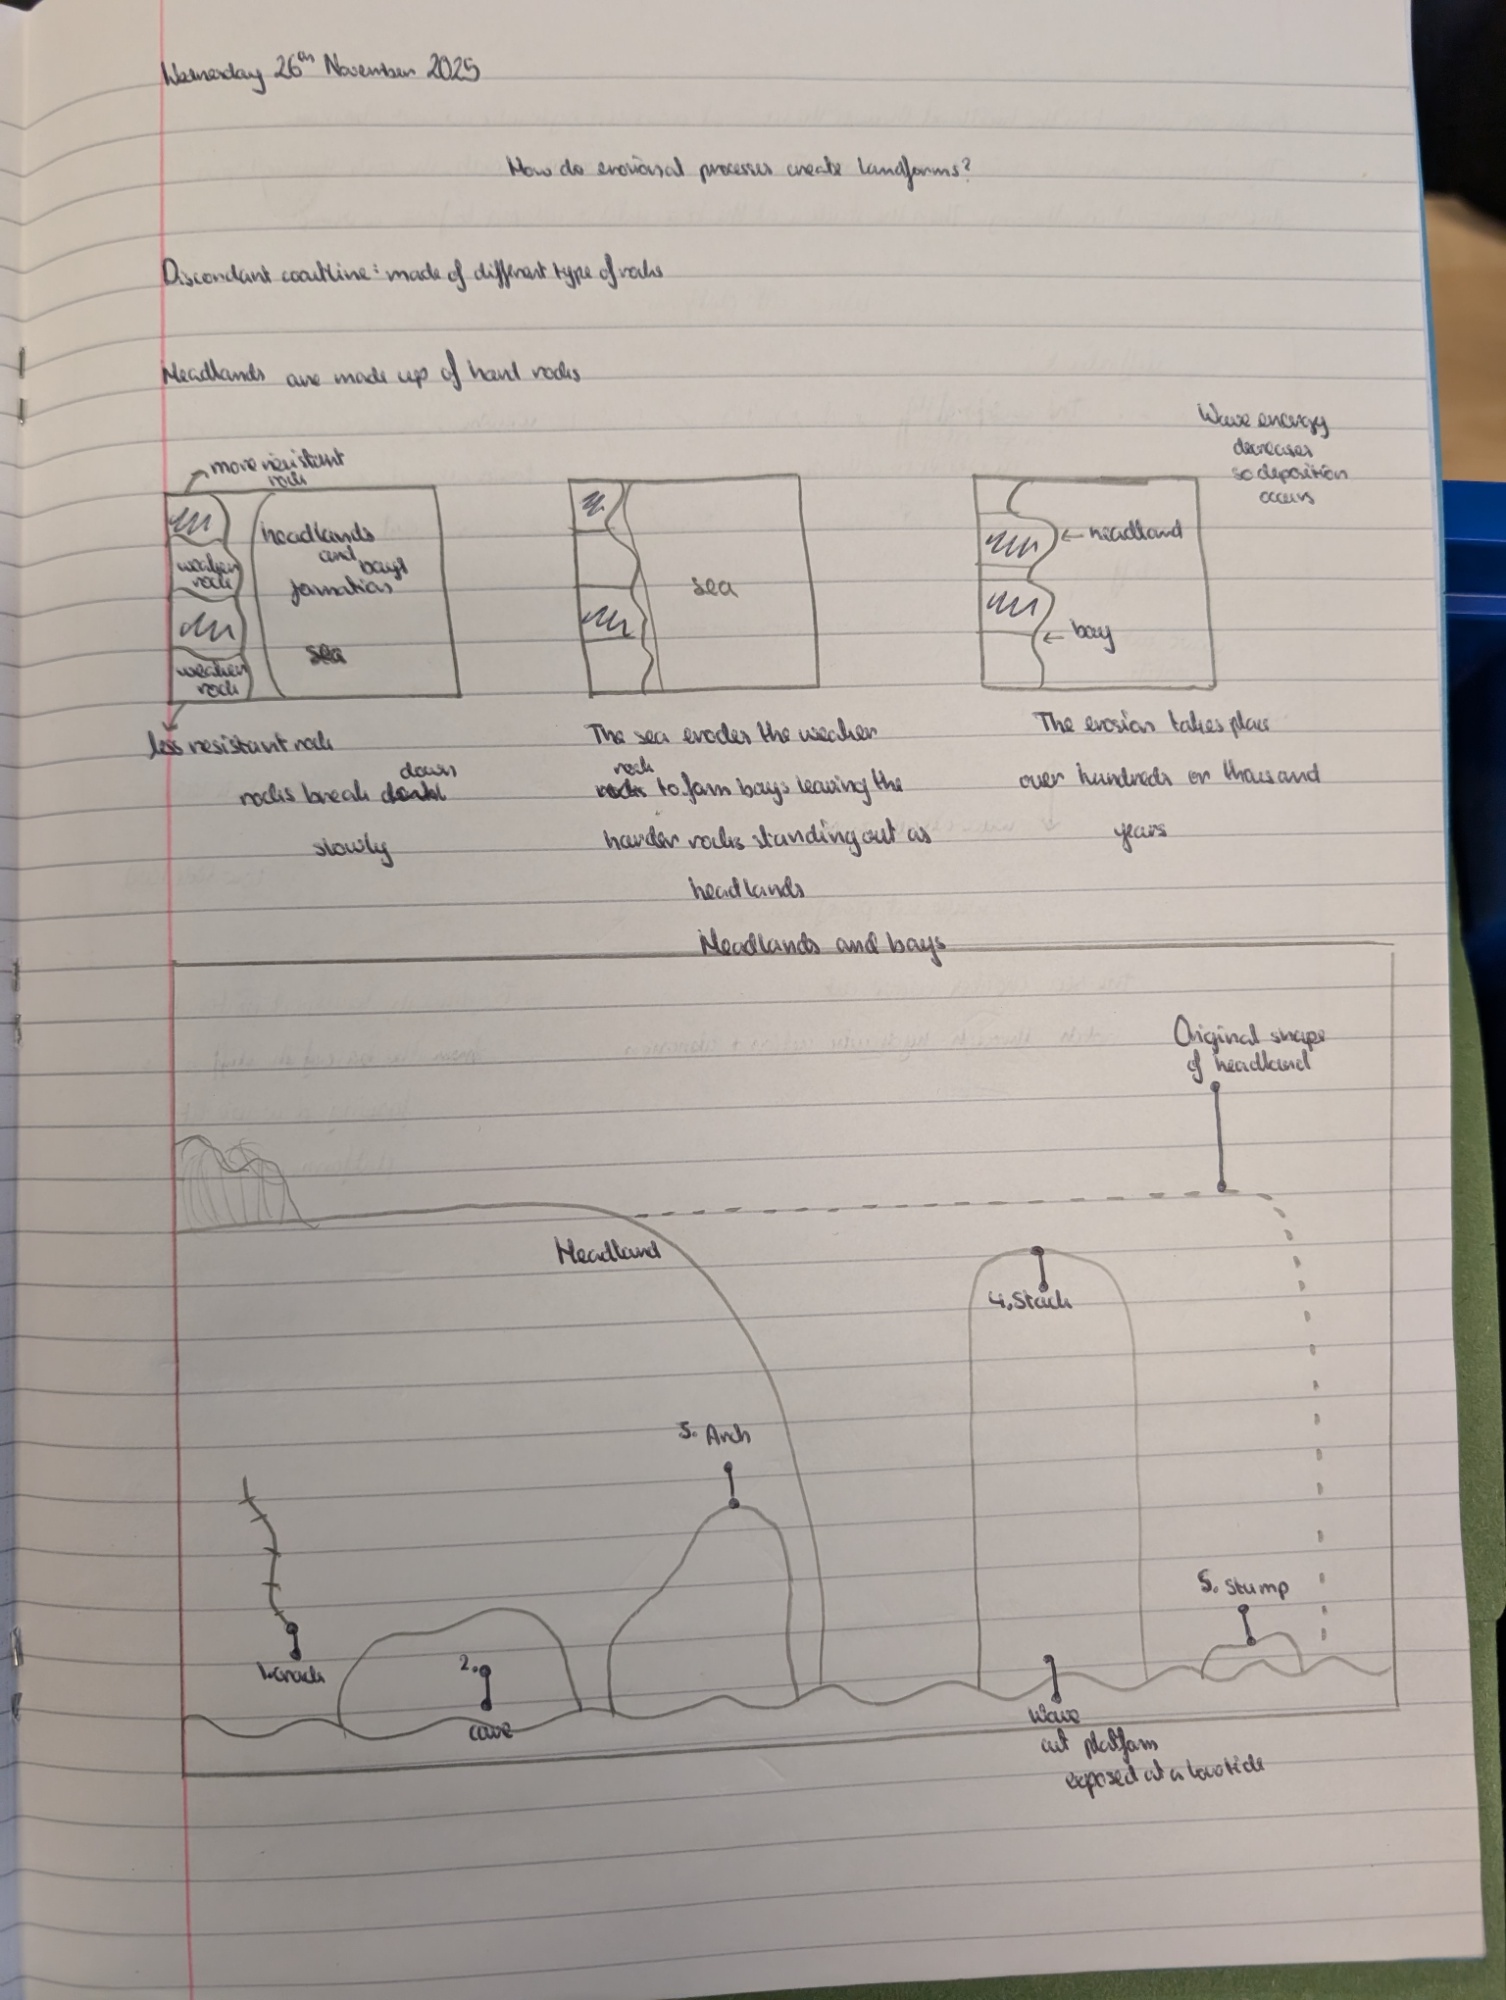 Wednesday 26th November 2025
How do erosional processes create landforms?
Discordant coastline: made of different type of rocks
Headlands are made up of hard rocks
Wave energy
decreases
so deposition
occurs
more resistant
rock
headlands
and
bays
formations
weaker
rock
sea
weaker
rock
less resistant rock
rocks break down
slowly
sea
The sea erodes the weaker
rock
to form bays leaving the
harder rocks standing out as
headlands
headland
bay
The erosion takes place
over hundreds or thousand
years
Headlands and bays
Original shape
of headland
Headland
4. Stack
3. Arch
5. Stump
1. Crack
2.
cave
Wave
cut platform
exposed at a low tide